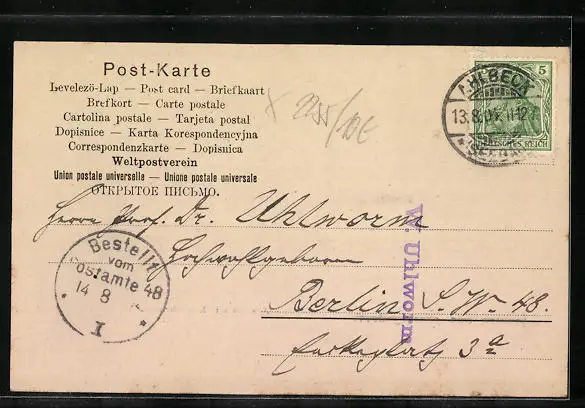 Post-Karte
Levelező-Lap — Post card — Briefkaart
Brefkort — Carte postale
Cartolina postale — Tarjeta postal
Dopisnice — Karta Korespondencyjna
Correspondenzkarte — Dopisnica
Weltpostverein
Union postale universelle — Unione postale universale
ОТКРЫТОЕ ПИСЬМО.
AHLBECK
13.8.0
SEEBAD
5
DEUTSCHES REICH
Herrn Prof. Dr. Uhlworm
Hochwohlgeboren
Berlin S. W. 48.
3 a
W. Uhlworm
Bestellt
vom
Postamte 48
14 8
I